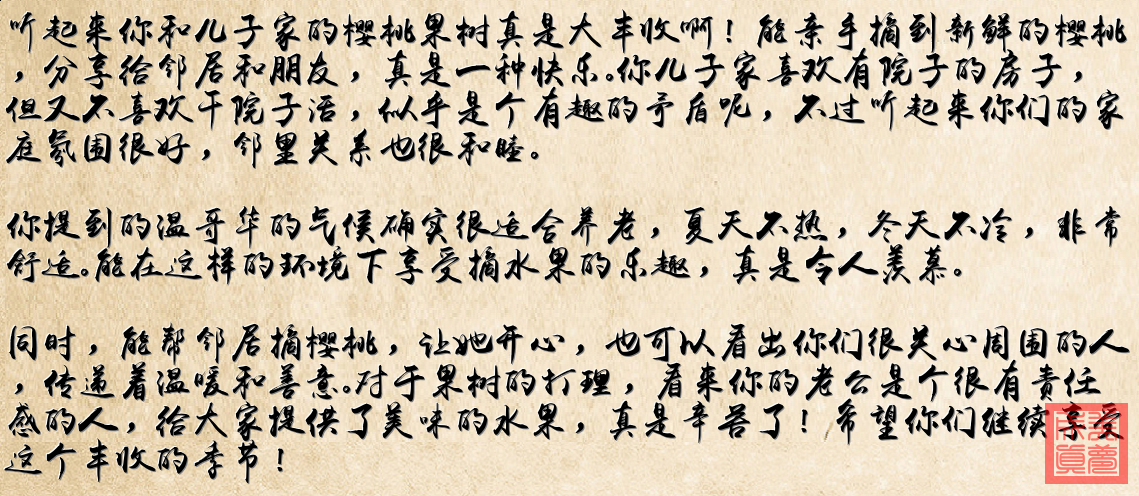 听起来你和儿子家的樱桃果树真是大丰收啊！能亲手摘到新鲜的樱桃
，分享给邻居和朋友，真是一种快乐。你儿子家喜欢有院子的房子，
但又不喜欢干院子活，似乎是个有趣的矛盾呢，不过听起来你们的家
庭氛围很好，邻里关系也很和睦。
你提到的温哥华的气候确实很适合养老，夏天不热，冬天不冷，非常
舒适。能在这样的环境下享受摘水果的乐趣，真是令人羡慕。
同时，能帮邻居摘樱桃，让她开心，也可以看出你们很关心周围的人
，传递着温暖和善意。对于果树的打理，看来你的老公是个很有责任
感的人，给大家提供了美味的水果，真是辛苦了！希望你们继续享受
这个丰收的季节！